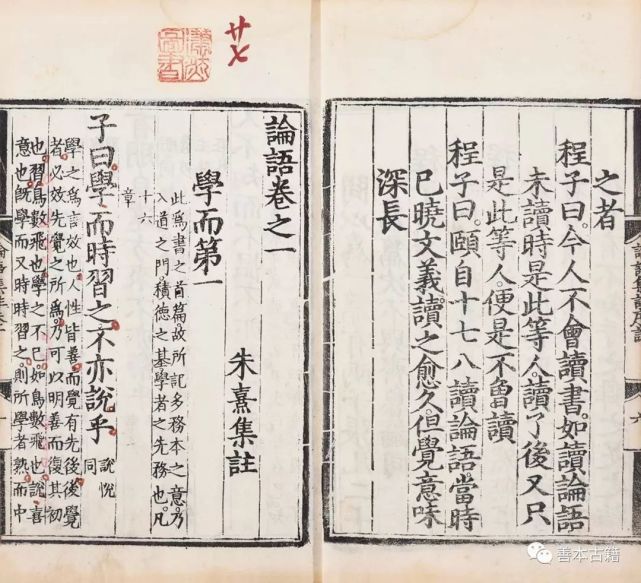 之者
程子曰今人不會讀書如讀論語
未讀時是此等人讀了後又只
是此等人便是不魯讀
程子曰頤自十七八讀論語當時
已曉文義讀之愈久但覺意味
深長
論語卷之一
朱熹集註
學而第一
此為書之首篇故所記多務本之意乃
入道之門積德之基學者之先務也凡
十六
章
子曰學而時習之不亦說乎
說悅
同
學之為言效也人性皆善而覺有先後後覺
者必效先覺之所為乃可以明善而復其初
也習鳥數飛也學之不已如鳥數飛也說喜
意也既學而又時時習之則所學者熟而中
善本古籍